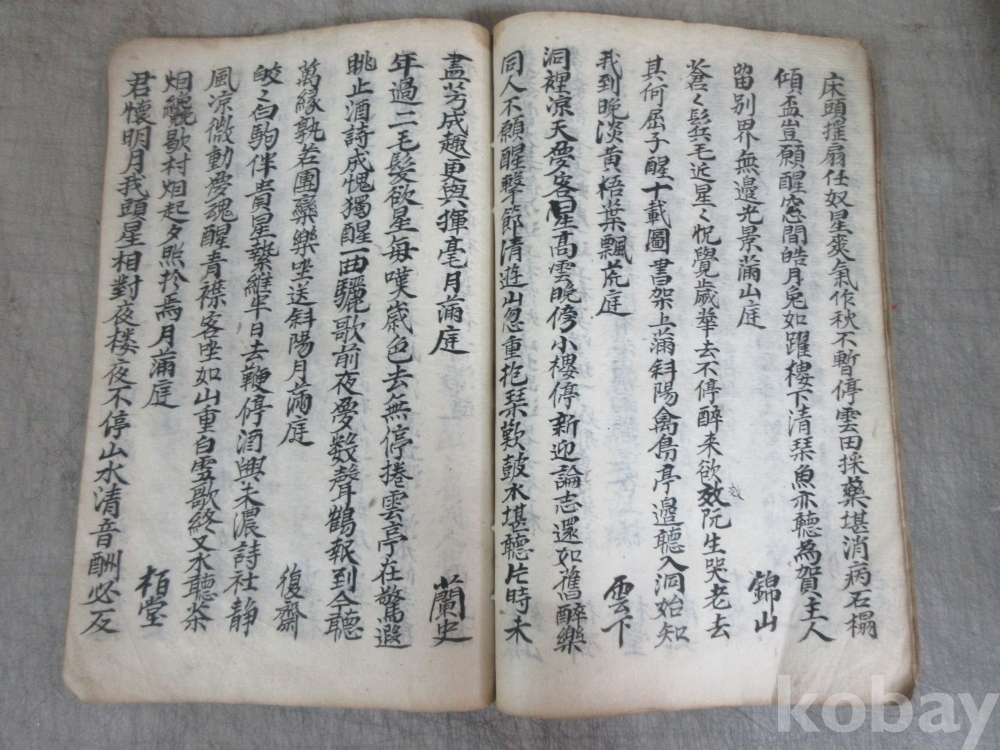 床頭摧扇任奴星爽氣作秋不暫停雲田採藥堪消病石榻
傾盃豈願醒窓間皓月兎如躍樓下清琹魚亦聽為賀主人
留別界無邉光景滿山庭
錦山
蒼〻髩毛近星〻怳覺歲華去不停醉来欲效阮生哭老去
其何屈子醒十載圖書架上滿斜陽禽鳥亭邉聽入洞始知
我到晩淡黄梧葉飄荒庭
雲下
洞裡凉天夢客星高雲晩傍小樓停新迎論志還如舊醉樂
同人不願醒擊節清遊山忽重抱琹歎鼓水堪聽片時未
盡芳成趣更與揮毫月滿庭
蘭史
年過二毛髮欲星每嘆歲色去無停捲雲亭在驚遐
眺止酒詩成愧獨醒一曲驪歌前夜夢數聲鶴報到今聽
萬緣孰若團欒樂坐送斜陽月滿庭
復齋
皎〻白駒伴貴星縶維半日去鞭停酒興未濃詩社靜
風凉微動夢魂醒青襟客座如山重白雪歌終又水聽茶
烟纔歇村烟起夕照於焉月滿庭
栢堂
君懷明月我頭星相對夜樓夜不停山水清音酬必反
kobay